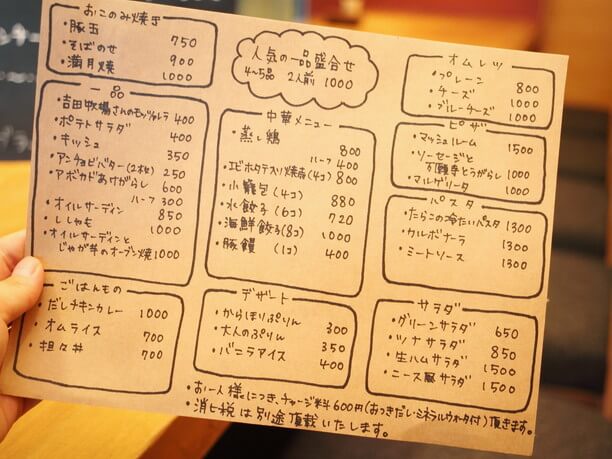 おこのみ焼き
・豚玉 750
・そばのせ 900
・満月焼 1000
人気の一品盛合せ
4〜5品 2人前 1000
オムレツ
・プレーン 800
・チーズ 1000
・ブルーチーズ 1000
一品
・吉田牧場さんのモッツァレラ 400
・ポテトサラダ 400
・キッシュ 350
・アンチョビバター(2本分) 250
・アボカドあけがらし 600
ハーフ 300
・オイルサーディン 850
・ししゃも 1000
・オイルサーディンと
じゃが芋のオーブン焼 1000
中華メニュー
・蒸し鶏 800
ハーフ 400
・エビホタテスリ焼売(4コ) 800
・小籠包(4コ) 880
・水餃子(6コ) 720
・海鮮餃子(8コ) 1000
・豚饅 (1コ) 400
ピザ
・マッシュルーム 1500
・ソーセージと
万願寺とうがらし 1000
・マルゲリータ 1000
パスタ
・たらこの冷たいパスタ 1300
・カルボナーラ 1300
・ミートソース 1300
ごはんもの
・だしチキンカレー 1000
・オムライス 700
・担々丼 700
デザート
・からほりぷりん 300
・大人のぷりん 350
・バニラアイス 400
サラダ
・グリーンサラダ 650
・ツナサラダ 850
・生ハムサラダ 1500
・ニース風サラダ 1500
・お一人様につき、チャージ料600円(おつきだし・ミネラルウォータ付)頂きます。
・消費税は別途頂戴いたします。